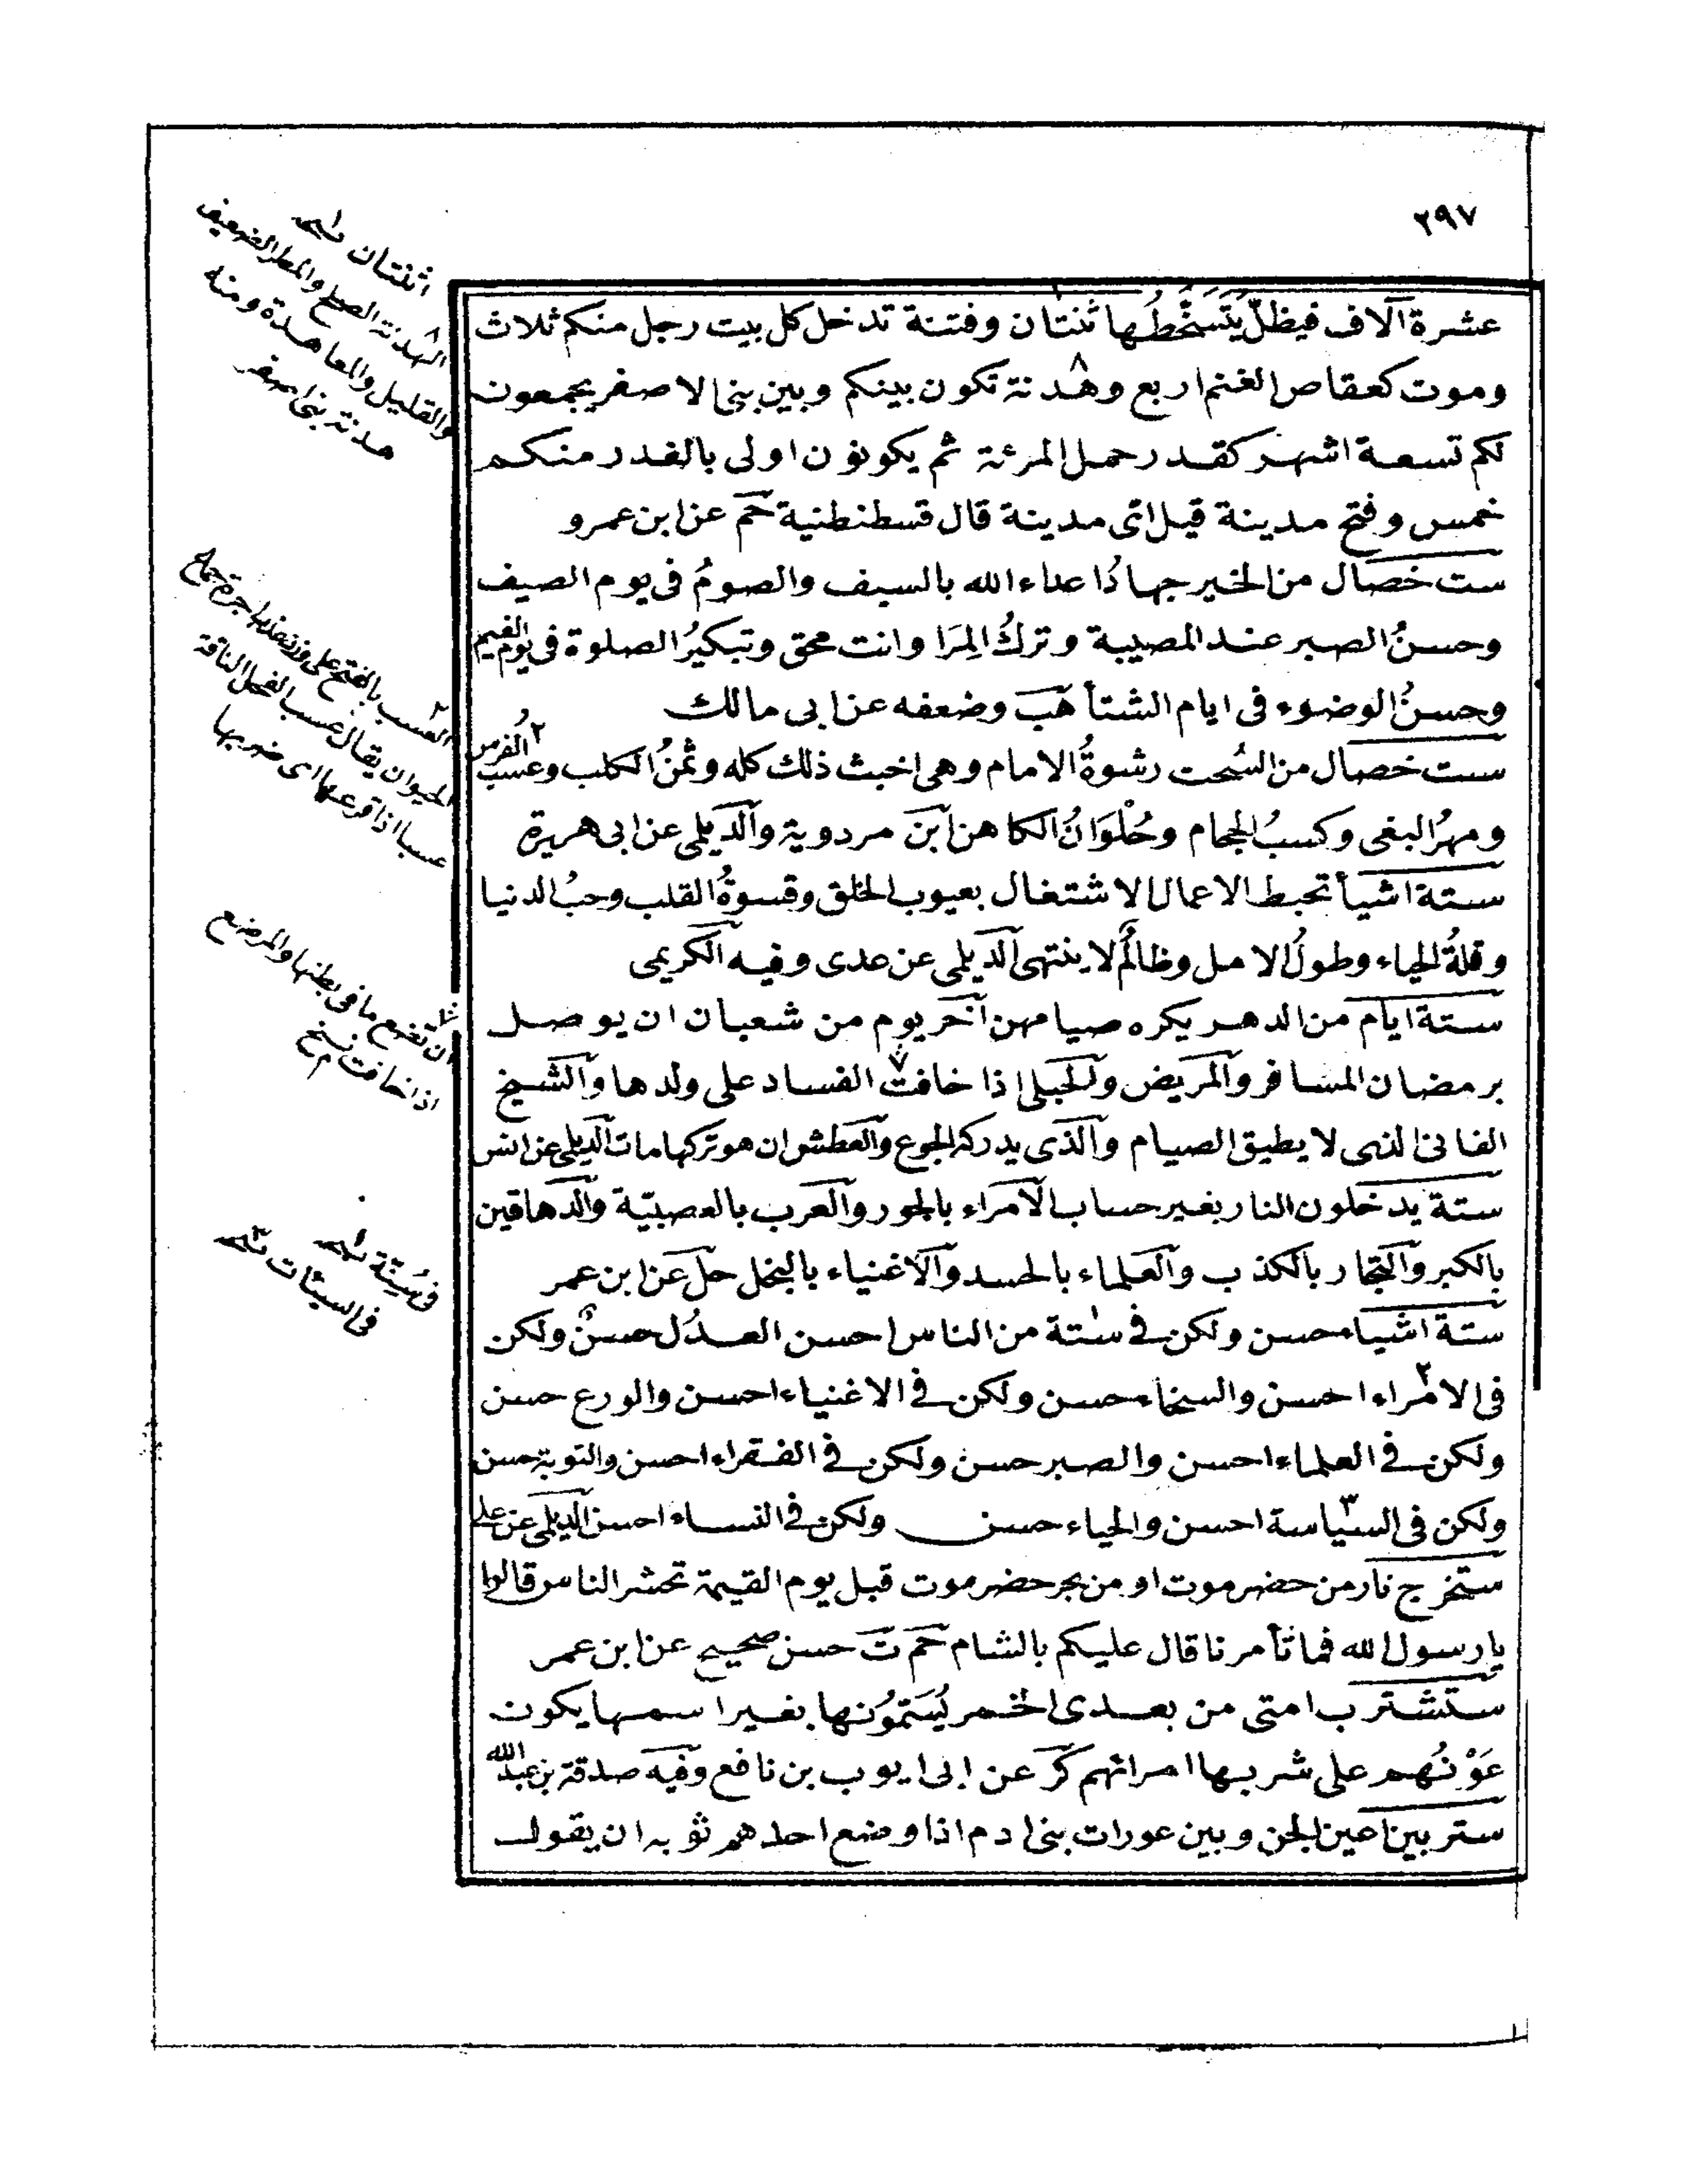 ٢٩٧
عشرة آلاف فيظلّ يتَسَخَّطُها ثنتان وفتنة تدخل كل بيت رجل منكم ثلاث
وموت كعقاص الغنم اربع وهدنة تكون بينكم وبين بنى الاصفر يجمعون
لكم تسعة اشهر كقدر حمل المرئة ثم يكونون اولى بالغدر منكم
خمس وفتح مدينة قيل اىّ مدينة قال قسطنطنية حم عن ابن عمرو
ست خصال من الخير جهادُ اعداء الله بالسيف والصومُ فى يوم الصيف
وحسنُ الصبر عند المصيبة وتركُ المِرَا وانت محق وتبكيرُ الصلوة فى يوم الغيم
وحسنُ الوضوء فى ايام الشتأ هب وضعفه عن ابى مالك
ست خصال من السُحت رشوةُ الامام وهى اخبث ذلك كله وثمنُ الكلب وعسب الفرس
ومهرُ البغى وكسبُ الحجام وحُلْوَانُ الكاهن ابن مردوية والديلمى عن ابى هريرة
ستة اشيأ تحبط الاعمال الاشتغال بعيوب الخلق وقسوةُ القلب وحبُ الدنيا
وقلةُ الحياء وطولُ الامل وظالمٌ لا ينتهى الديلمى عن عدى وفيه الكريمى
ستة ايام من الدهر يكره صيامهن آخر يوم من شعبان ان يوصل
برمضان المسافر والمريض والحبلى اذا خافت الفساد على ولدها والشيخ
الفانى الذى لا يطيق الصيام والذى يدركه الجوع والعطش ان هو تركها مات الديلمى عن انس
ستة يدخلون النار بغير حساب الامراء بالجور والعرب بالعصبيّة والدهاقين
بالكبر والتجار بالكذب والعلماء بالحسد والاغنياء بالبخل حل عن ابن عمر
ستة اشياء حسن ولكن فى ستة من الناس احسن العدلُ حسنٌ ولكن
فى الامراء احسن والسخاء حسن ولكن فى الاغنياء احسن والورع حسن
ولكن فى العلماء احسن والصبر حسن ولكن فى الفقراء احسن والتوبة حسن
ولكن فى السياسة احسن والحياء حسن ولكن فى النساء احسن الديلمى عن على
ستخرج نار من حضرموت او من بحر حضرموت قبل يوم القيمة تحشر الناس قالوا
يا رسول الله فما تأمرنا قال عليكم بالشام حم ت حسن صحيح عن ابن عمر
ستشترب امتى من بعدى الخمر يُسَمّوُنها بغير اسمها يكون
عَوْنُهم على شربها امرائهم كر عن ابى ايوب بن نافع وفيه صدقة بن عبد الله
ستر بين اعين الجن وبين عورات بنى ادم اذا وضع احدهم ثوبه ان يقول
اثنتان نسخه
الهدنة الصلح والمطر الضعيف
والقليل والمعاهدة ومنه
هدنة بنى اصفر
العسب بالفتح على وزن عذب اجرة جماع
الحيوان يقال عسب الفحل الناقة
عسبا اذا قرعها اى ضربها
ان تضع ما فى بطنها والمرضع
اذا خافت نسخ م
فى سيئة نسخه
فى السيئات نسخه